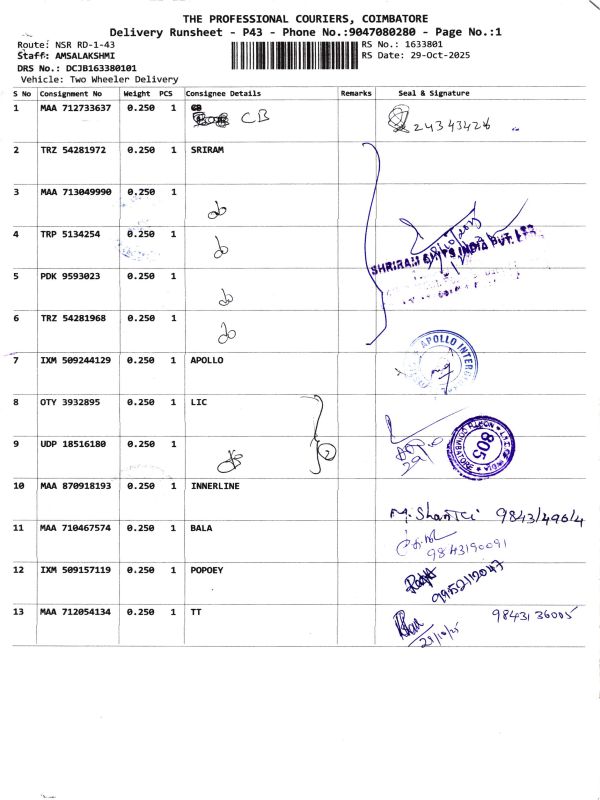 THE PROFESSIONAL COURIERS, COIMBATORE
Delivery Runsheet - P43 - Phone No.:9047080280 - Page No.:1
Route: NSR RD-1-43 RS No.: 1633801
Staff: AMSALAKSHMI RS Date: 29-Oct-2025
DRS No.: DCJB163380101
Vehicle: Two Wheeler Delivery
S No Consignment No Weight PCS Consignee Details Remarks Seal & Signature
1 MAA 712733637 0.250 1 CB 24343426
2 TRZ 54281972 0.250 1 SRIRAM
3 MAA 713049990 0.250 1 do
4 TRP 5134254 0.250 1 do
SHRIRAM INDIA PVT. LTD.
5 PDK 9593023 0.250 1 do
6 TRZ 54281968 0.250 1 do
7 IXM 509244129 0.250 1 APOLLO APOLLO
8 OTY 3932895 0.250 1 LIC
9 UDP 18516180 0.250 1 do 2 805
10 MAA 870918193 0.250 1 INNERLINE
M. Shanthi
11 MAA 710467574 0.250 1 BALA
9843190091
12 IXM 509157119 0.250 1 POPOEY
13 MAA 712054134 0.250 1 TT 9843136005
29/10/25